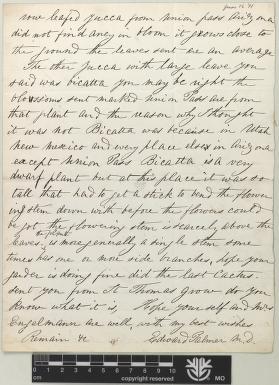 June 16 '71
row leafed yucca from Union pass Arizona
did not find any in bloom it grows close to
the ground the leaves sent are an average
The other yucca with large leave you
said was bicatta you may be right the
blossoms sent marked Union Pass are from
that plant and the reason why I thought
it was not Bicatta was because in Utah
New Mexico and every place elses in Arizona
except Union Pass Bicatta is a very
dwarf plant but at this place it was so
tall that had to get a stick to bend the flower
ing stem down with before the flowers could
be got the flowering stem is scarcely above the
leaves. is more generally a single stem some
times has one or more side branches, hope your
garden is doing fine did the last Cactus
sent you from St Thomas grow do you
know what it is, Hope yourself and Mrs
Engelmann are well, with my best wishes
Remain &c Edward Palmer M.D.
copyright reserved
MO